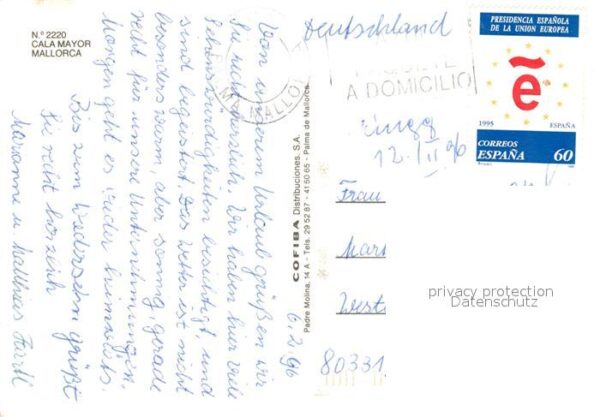 N.º 2220
CALA MAYOR
MALLORCA
6.2.96
Von unserem Urlaub grüßen wir
Sie recht herzlich. Wir haben hier viele
Sehenswürdigkeiten besichtigt, und
sind begeistert. Das Wetter ist nicht
besonders warm, aber sonnig, gerade
recht für unsere Unternehmungen.
Morgen geht es wieder heimwärts.
Bis zum Wiedersehn grüßt
Sie recht herzlich
Marianne u. Mathias
COFIBA Distribuciones, S.A.
Padre Molina, 14 A - Tels. 29 52 87 - 41 50 65 - Palma de Mallorca
Deutschland
A DOMICILIO
PRESIDENCIA ESPAÑOLA
DE LA UNION EUROPEA
ẽ
1995 ESPAÑA
CORREOS
ESPAÑA 60
12. II 96
Frau
Mar
West
80331
privacy protection
Datenschutz